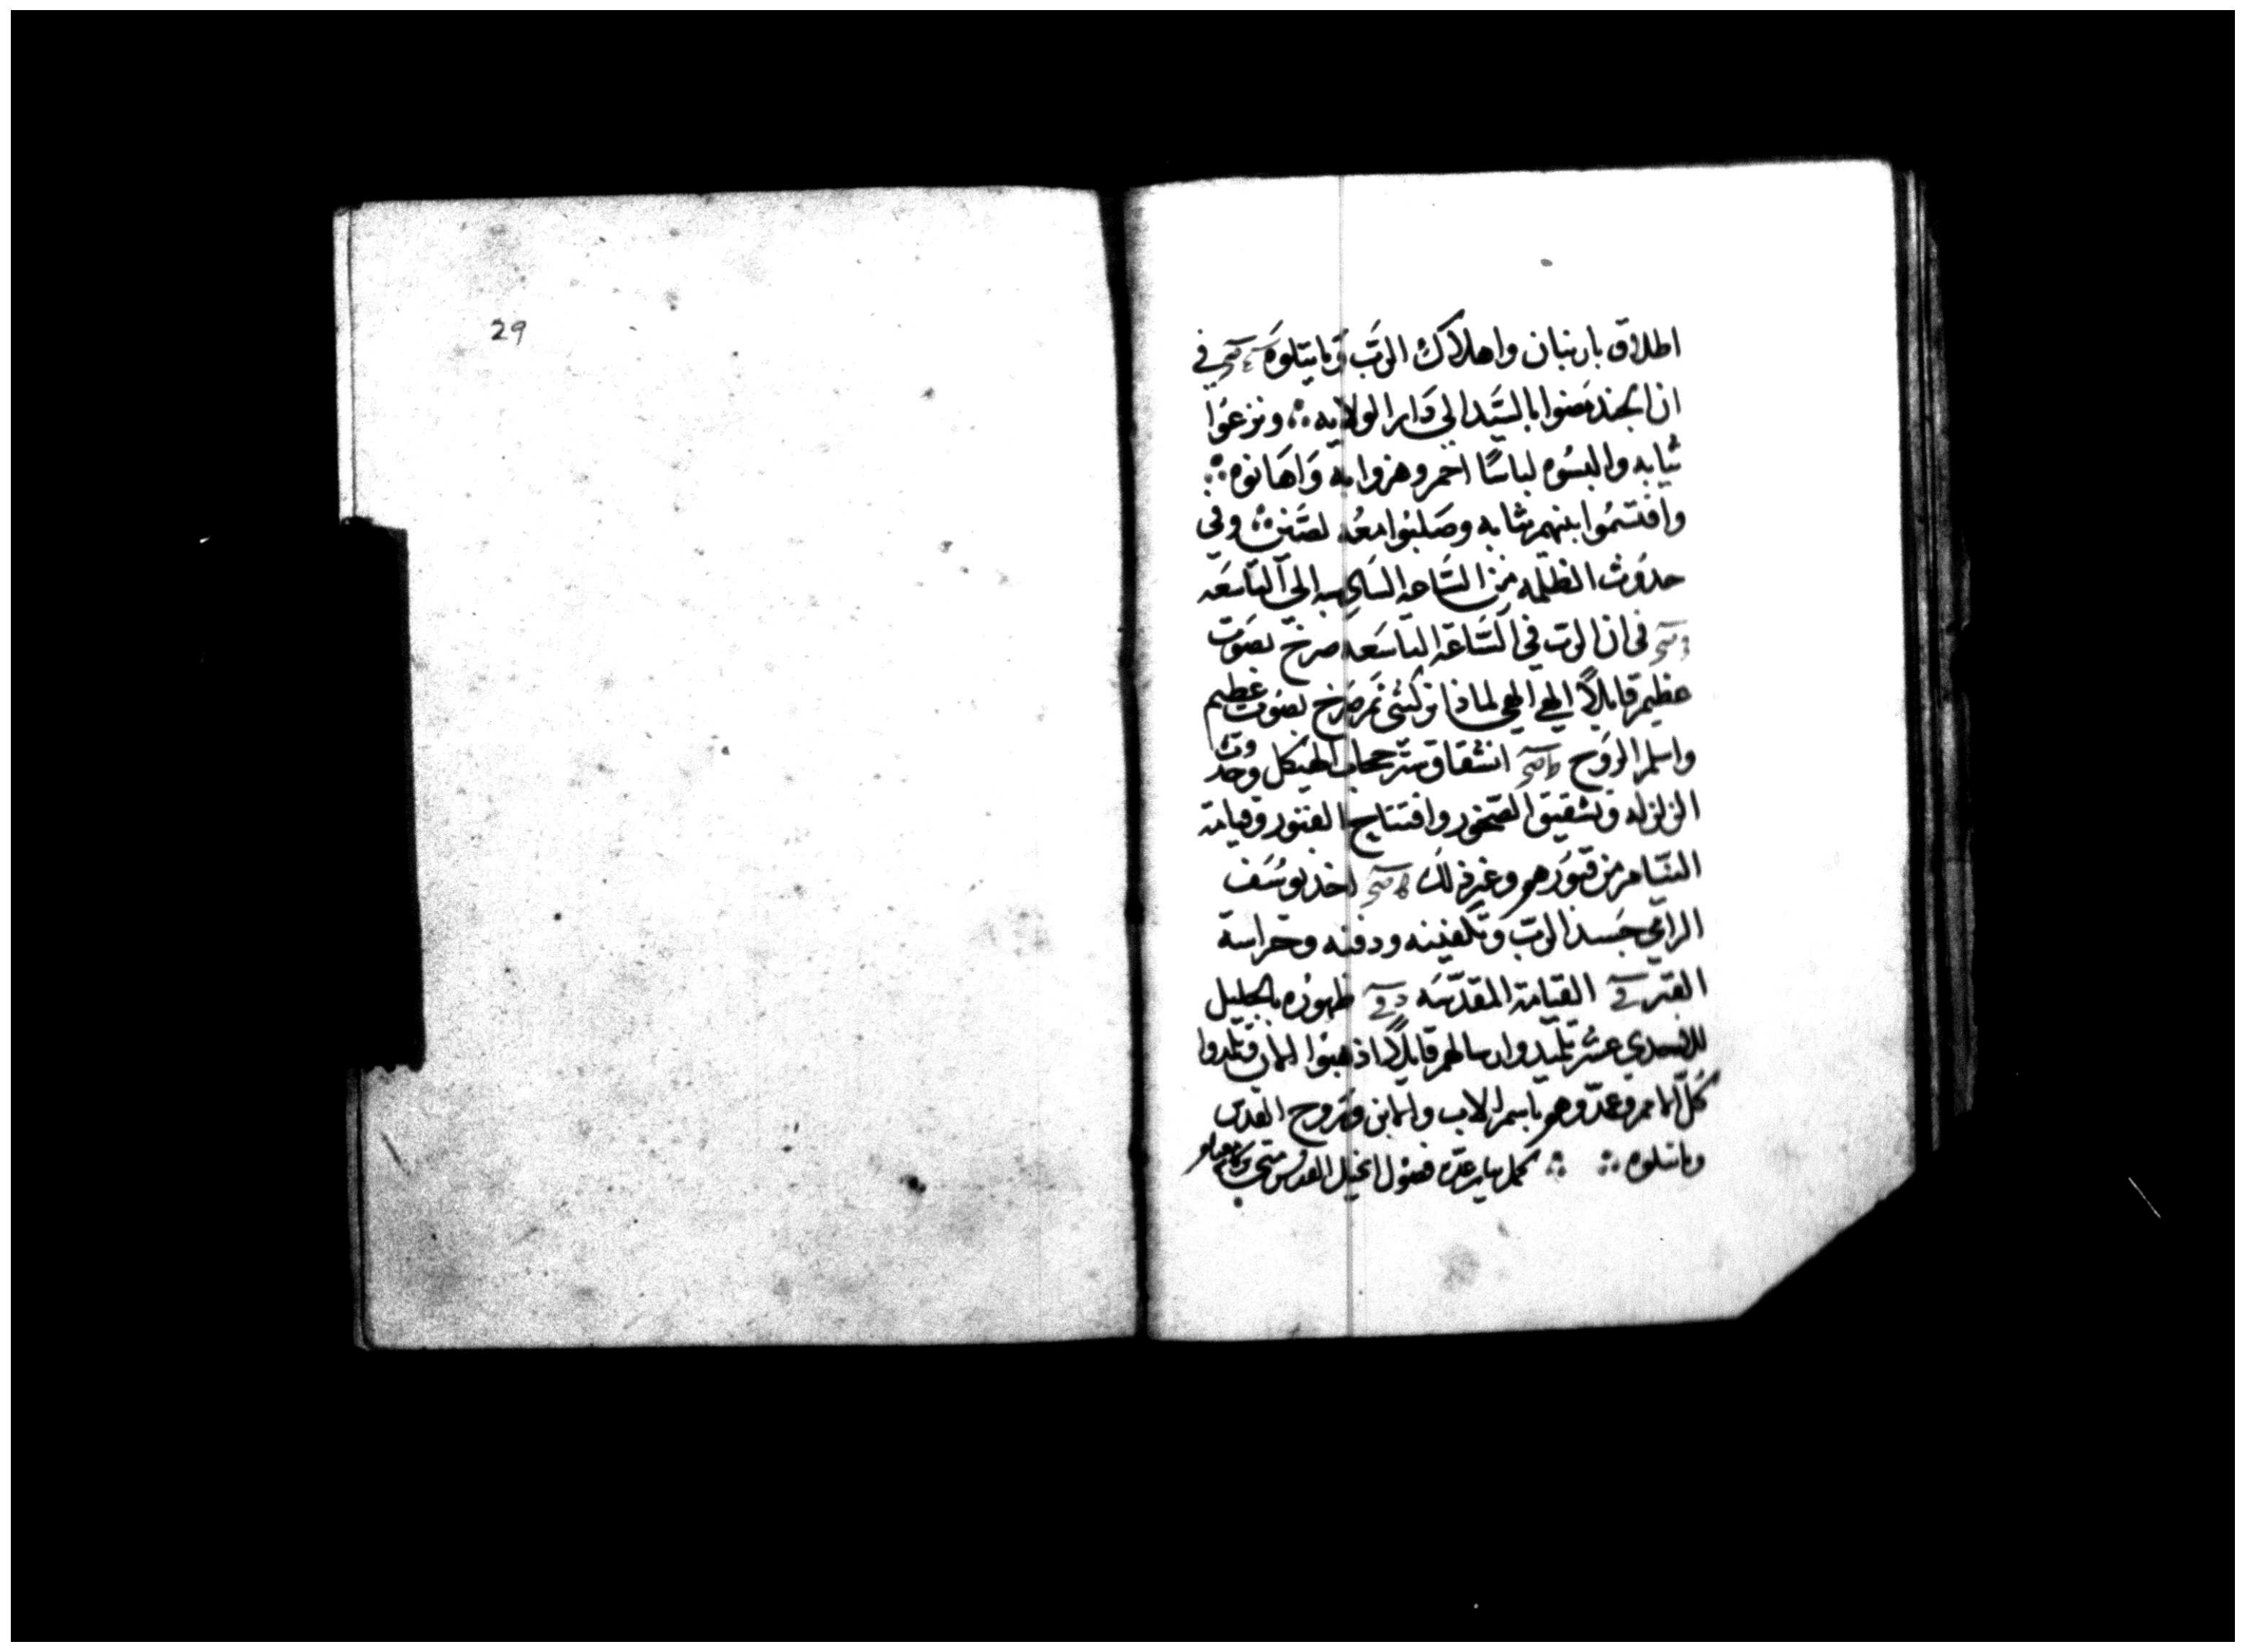 29
اطلاق باربنان واهلاك الرب وما يتلوه في
ان الجند مضوا بالسيد الي دار الولايه ؞ ونزعوا
ثيابه والبسوه لباسًا احمر وهزوا به واهانوه ؞
واقتسموا بينهم ثيابه وصلبوا معه لصين ؞ وفي
حدوث الظلمه من الساعه السادسه الي التاسعه
في ان الرب في الساعة التاسعه صرخ بصوت
عظيم قايلاً الهي الهي لماذا تركتني ثم صرخ بصوت عظيم
واسلم الروح انشقاق ستر حجاب الهيكل وحدوث
الزلزله وتشقيق الصخور وافتتاح القبور وقيامة
النيام من قبورهم وغير ذلك اخذ يوسف
الرامي جسد الرب وتكفينه ودفنه وحراسة
القبر القيامة المقدسه ظهوره بالجليل
للاحدي عشر تلميد وارسالهم قايلاً اذهبوا الان وتلمدوا
كل الامم وعمدوهم باسم الاب والابن والروح القدس
وما يتلوه ؞ ؞ كمل عدة فصول انجيل القديس متي